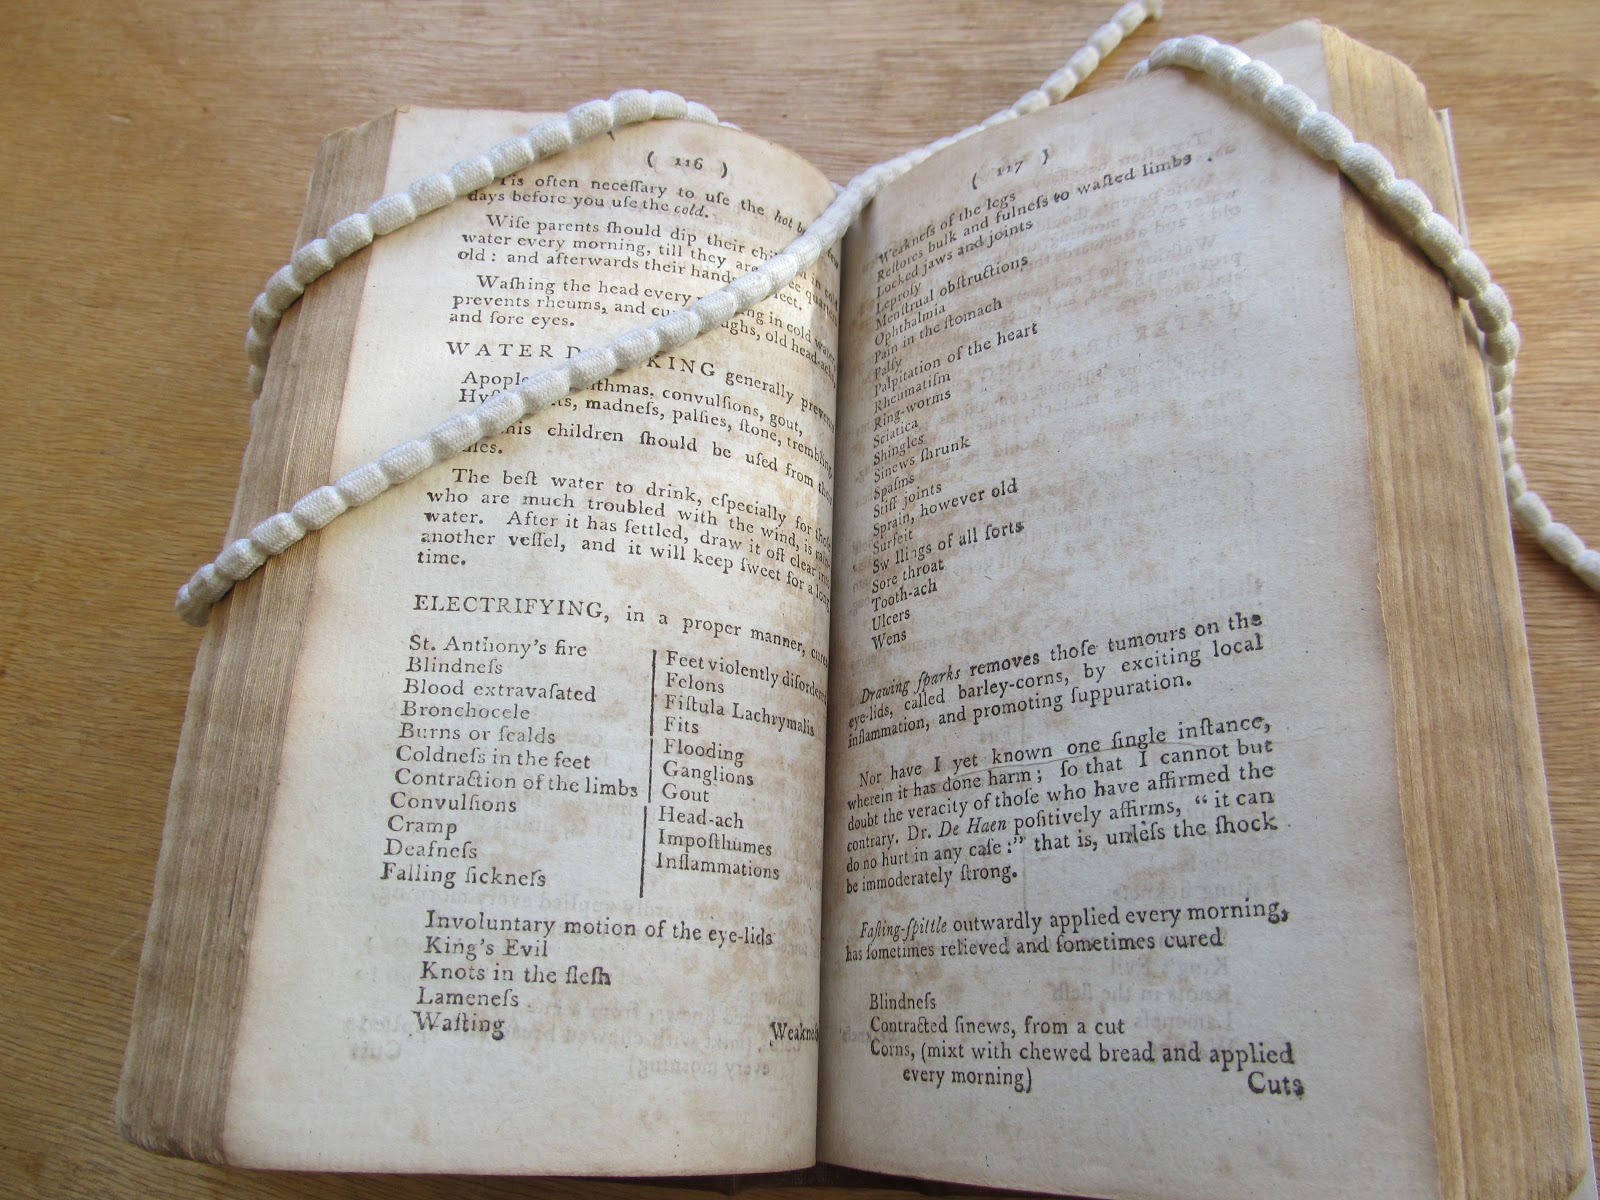 ( 116 )
'Tis often necessary to uſe the hot
days before you uſe the cold.
Wiſe parents ſhould dip their in cold
water every morning, till they are quarters
old: and afterwards their hands feet.
Waſhing the head every in cold water,
prevents rheums, and old head-achs,
and ſore eyes.
WATER generally prevents
convulſions, gout,
madneſs, palſies, ſtone, trembling
children ſhould be uſed from their
The beſt water to drink, eſpecially for thoſe
who are much troubled with the wind, is rain-
water. After it has ſettled, draw it off clear into
another veſſel, and it will keep ſweet for a long
time.
ELECTRIFYING, in a proper manner, cures
St. Anthony's fire
Blindneſs
Blood extravaſated
Bronchocele
Burns or ſcalds
Coldneſs in the feet
Contraction of the limbs
Convulſions
Cramp
Deafneſs
Falling ſickneſs
Feet violently diſordered
Felons
Fiſtula Lachrymalis
Fits
Flooding
Ganglions
Gout
Head-ach
Impoſthumes
Inflammations
Involuntary motion of the eye-lids
King's Evil
Knots in the fleſh
Lameneſs
Waſting
Weakneſs
( 117 )
Weakneſs of the legs
Reſtores bulk and fulneſs to waſted limbs
Locked jaws and joints
Leproſy
Menſtrual obſtructions
Ophthalmia
Pain in the ſtomach
Palſy
Palpitation of the heart
Rheumatiſm
Ring-worms
Sciatica
Shingles
Sinews ſhrunk
Spaſms
Stiff joints
Sprain, however old
Surfeit
Sw llings of all ſorts
Sore throat
Tooth-ach
Ulcers
Wens
Drawing ſparks removes thoſe tumours on the
eye-lids, called barley-corns, by exciting local
inflammation, and promoting ſuppuration.
Nor have I yet known one ſingle inſtance,
wherein it has done harm; ſo that I cannot but
doubt the veracity of thoſe who have affirmed the
contrary. Dr. De Haen poſitively affirms, “ it can
do no hurt in any caſe:” that is, unleſs the ſhock
be immoderately ſtrong.
Faſting-ſpittle outwardly applied every morning,
has ſometimes relieved and ſometimes cured
Blindneſs
Contracted ſinews, from a cut
Corns, (mixt with chewed bread and applied
every morning)
Cuts